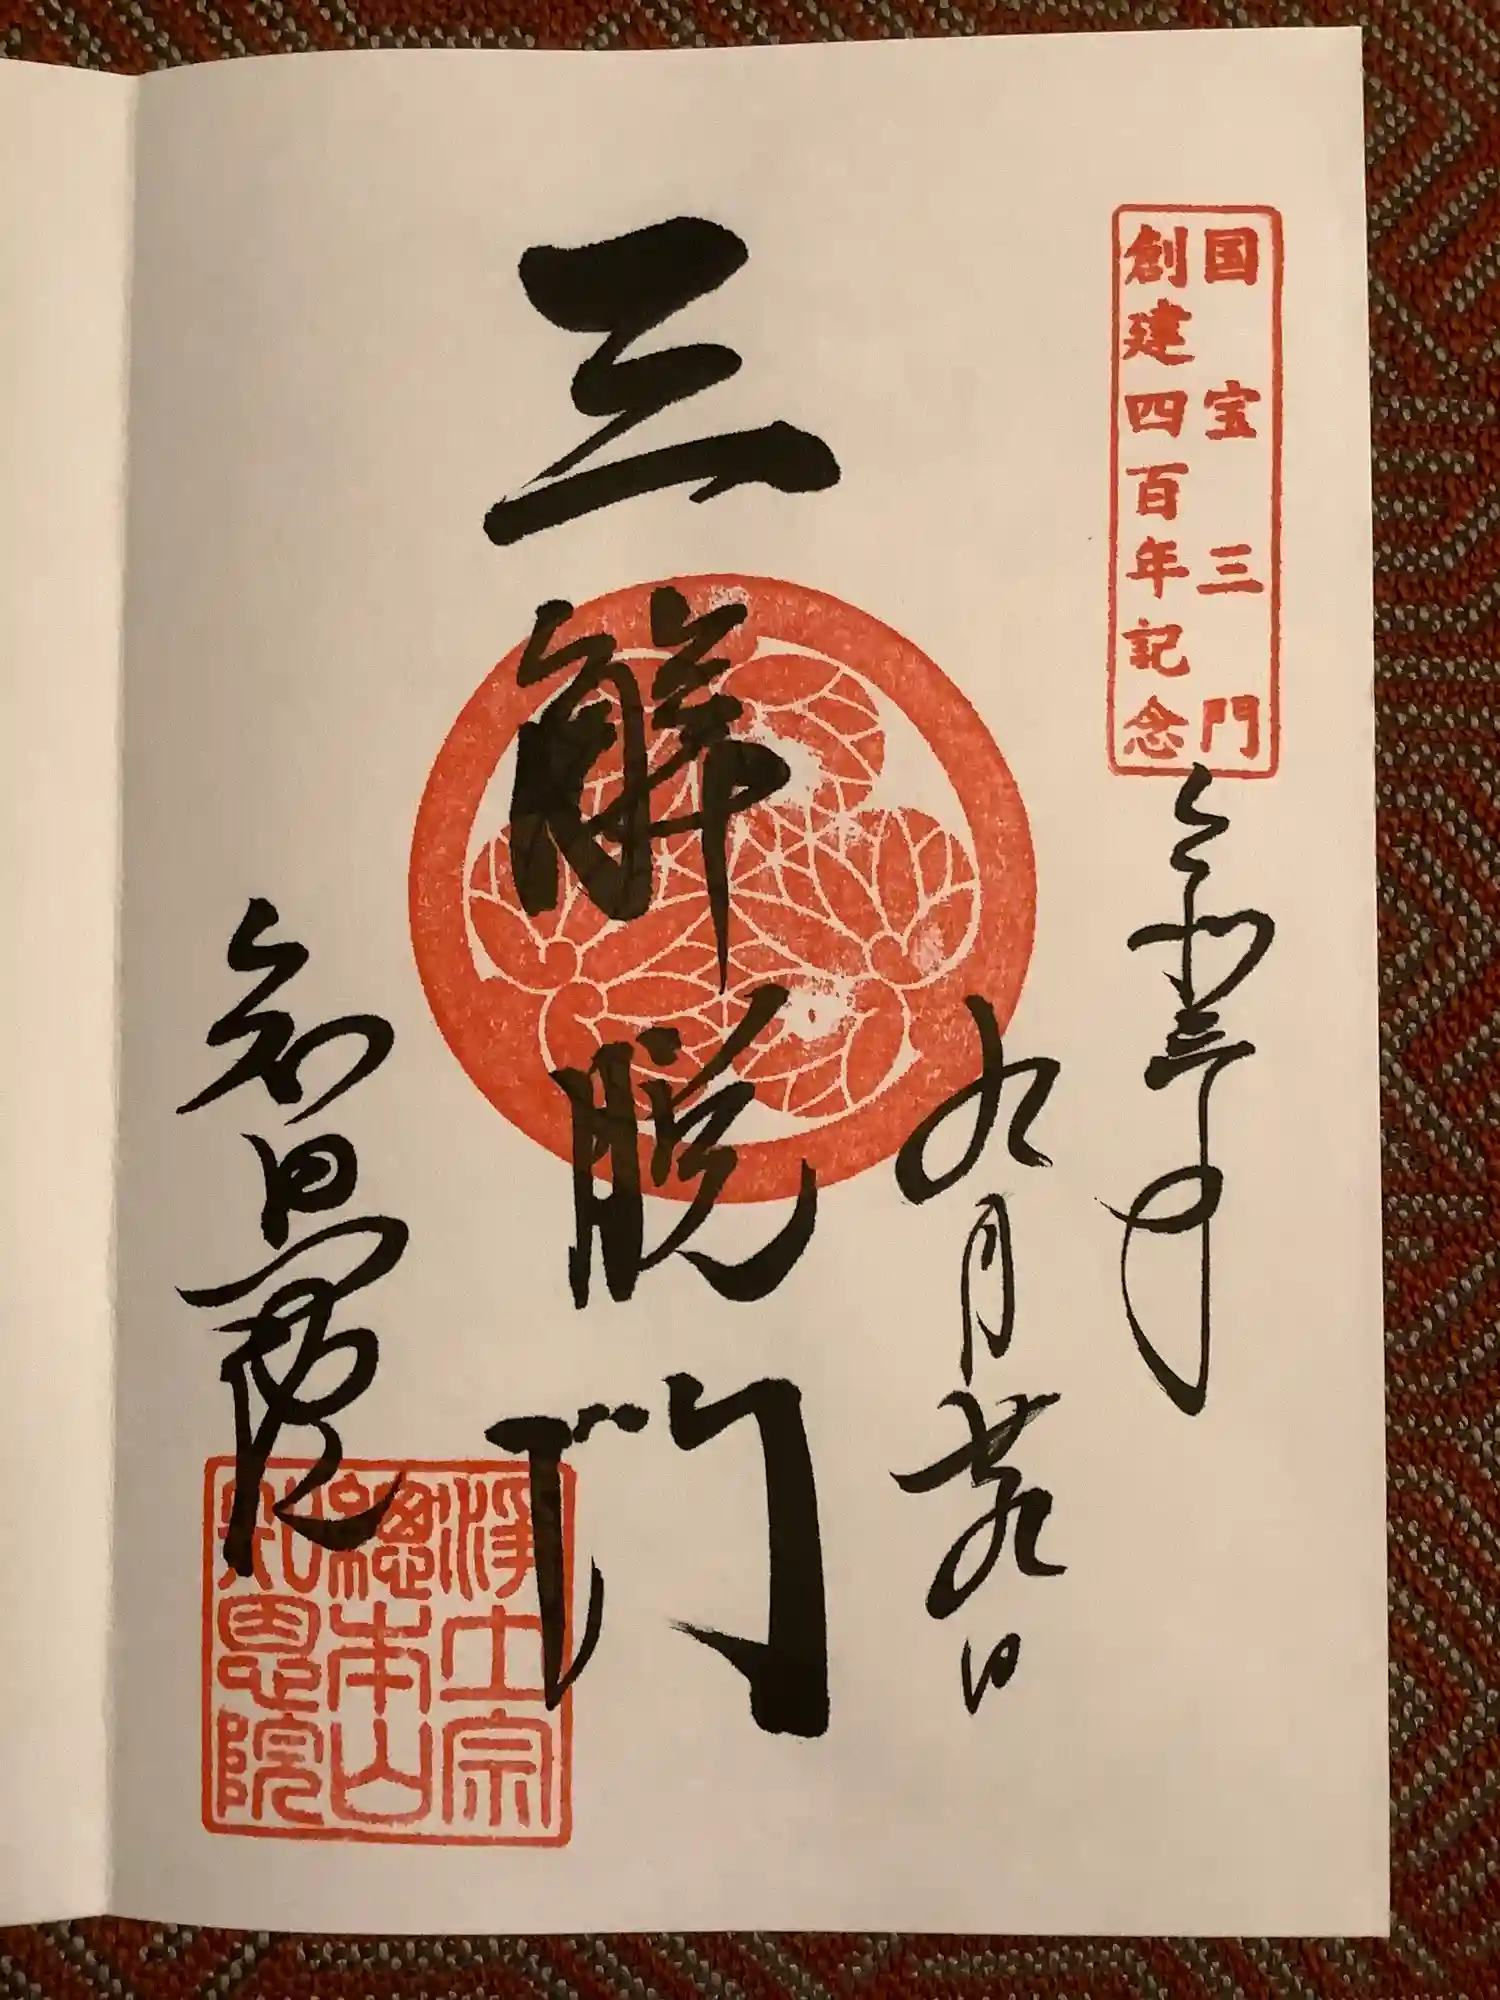 国宝三門
創建四百年記念
令和三年
九月廿九日
三解脱門
知恩院
浄土宗
總本山
知恩院